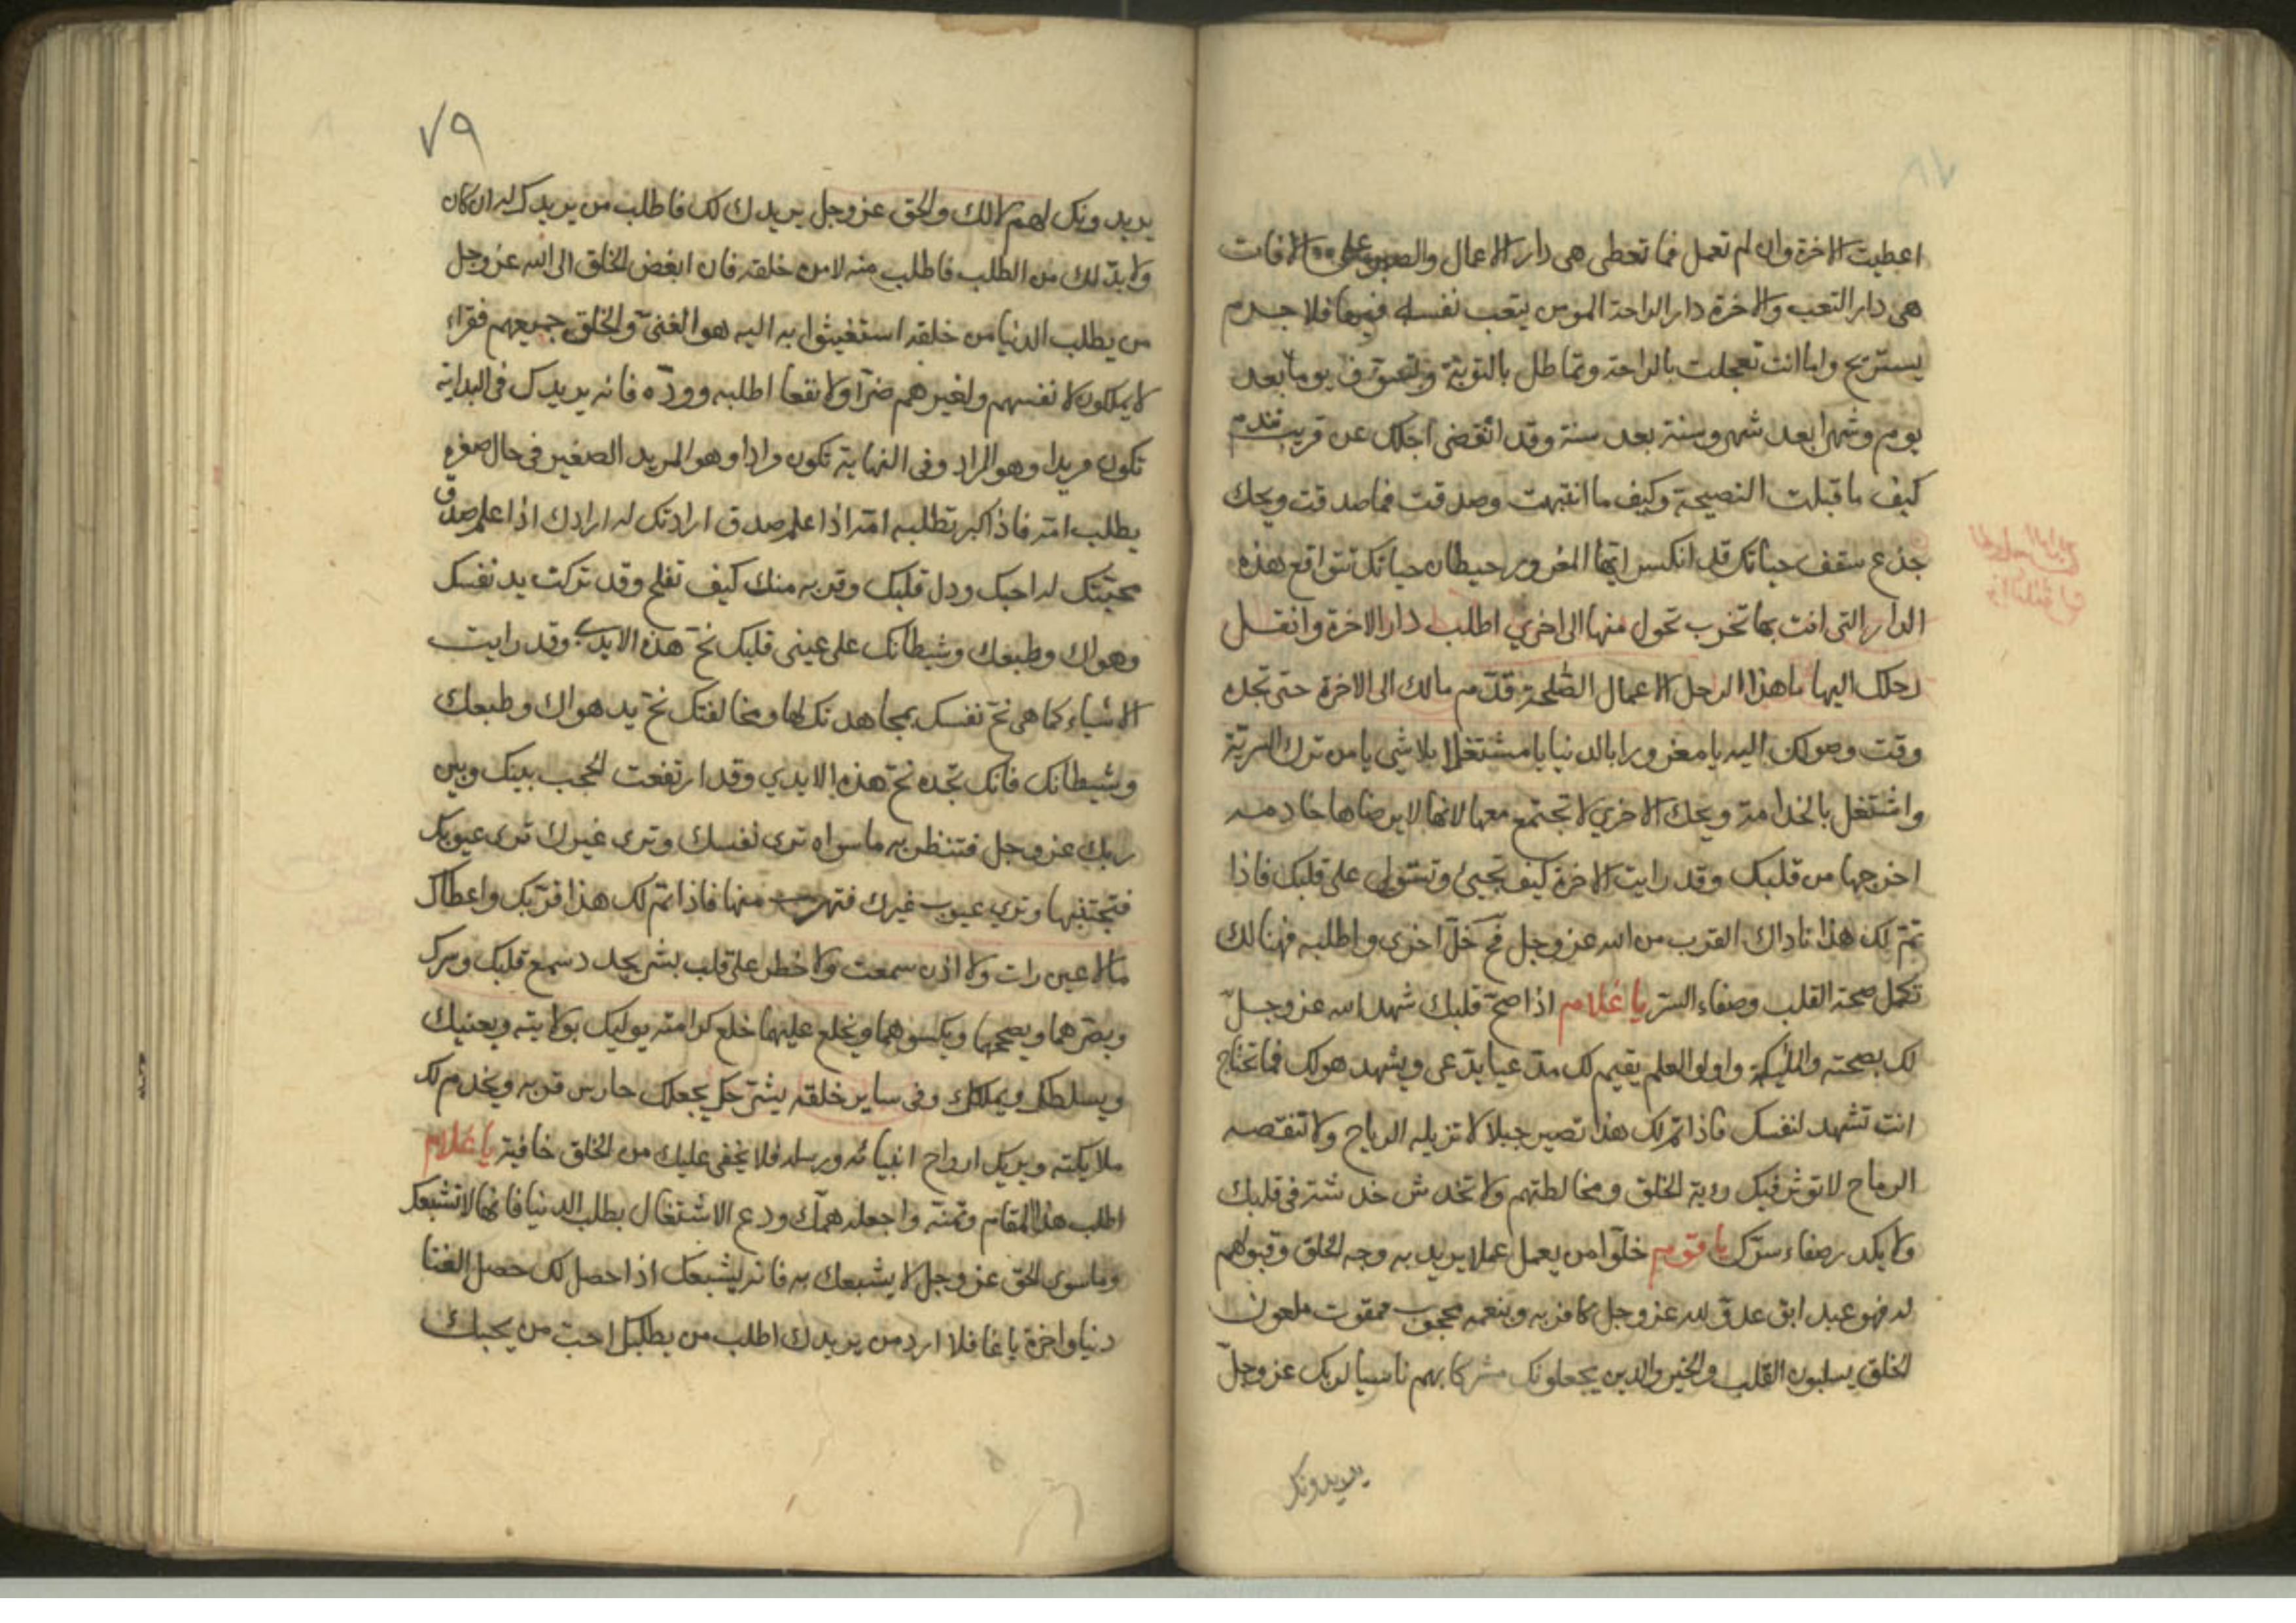 اعطيت الاخرة وان لم تعمل فما تعطى هى دار الاعمال والصبر على الافات
هى دار التعب والاخرة دار الراحة المومن يتعب نفسه فيها فلا جرم
يستريح واما انت تعجلت بالراحة وتماطل بالتوبة وتسوف يوما بعد
يوم وشهرا بعد شهر وسنة بعد سنة وقد انقضى اجلك عن قريب تندم
كيف ما قبلت النصيحة وكيف ما انتبهت وصدقت فما صدقت ويحك
جذع سقف حياتك قد انكسر ايها المغرور حيطان حياتك تتواقع هذه
الدار التى انت بها تخرب تحول منها الى اخري اطلب دار الاخرة وانقل
رحلك اليها ما هذا الرحل الاعمال الصلحة قدم مالك الى الاخرة حتى تجده
وقت وصولك اليه يا مغرورا بالدنيا يا مشتغلا بلا شي يا من ترك السرية
واشتغل بالخدامة ويحك الاخري لا تجتمع معها لانها لا يرضاها خادمه
اخرجها من قلبك وقد رايت الاخرة كيف تجيئ وتستولى على قلبك فاذا
تم لك هذا ناداك القرب من الله عز وجل فح خل اخرى واطلبه فهنالك
تكمل صحة القلب وصفاء السر يا غلام اذا صح قلبك شهد الله عز وجل
لك بصحته والمليكة واولوا العلم يقيم لك مدعيا يدعى ويشهد هو لك فما تحتاج
انت تشهد لنفسك فاذا تم لك هذا تصير جبلا لا تزيله الرياح ولا تنقصه
الرماح لا توثر فيك روية الخلق ومخالطتهم ولا تخدش خدشة فى قلبك
ولا يكدر صفاء سرك يا قوم خلوا من يعمل عملا يريد به وجه الخلق وقبولهم
له فهو عبد ابق عدو لله عز وجل كافر به وبنعمه محجوب ممقوت ملعون
الخلق يسلبون القلب والخير والدين يجعلونك مشركا بهم ناسيا لربك عز وجل
يريدونك
٧٩
يريدونك لهم لا لك والحق عز وجل يريدك لك فاطلب من يريدك له ان كان
ولا بد لك من الطلب فاطلب منه لا من خلقه فان ابغض الخلق الى الله عز وجل
من يطلب الدنيا من خلقه استغيثوا به اليه هو الغنى والخلق جميعهم فقراء
لا يملكون لا نفسهم ولغيرهم ضرا ولا نفعا اطلبه ووده فانه يريدك فى البداية
تكون مريدا وهو المراد وفى النهاية تكون مرادا وهو المريد الصغير فى حال صغره
يطلب امه فاذا كبر تطلبه امه اذا علم صدق ارادتك له ارادك اذا علم صدق
محبتك له احبك ودل قلبك وقربه منك كيف تفلح وقد تركت يد نفسك
وهواك وطبعك وشيطانك على عينى قلبك نح هذه الايدي وقد رايت
الاشياء كما هى نح نفسك بمجاهدتك لها ومخالفتك نح يد هواك وطبعك
وشيطانك فانك تجده نح هذه الايدي وقد ارتفعت الحجب بينك وبين
ربك عز وجل فتنظر به ما سواه ترى نفسك وترى غيرك ترى عيوبك
فتجتنبها وتري عيوب غيرك فتهرب منها فاذا تم لك هذا قربك واعطاك
ما لا عين رات ولا اذن سمعت ولا خطر على قلب بشر يجدد سمع قلبك وسرك
وبصرهما ويصححها ويكسوهما ويخلع عليهما خلع كرامته يوليك بولايته ويحنيك
ويسلطك ويملكك وفى ساير خلقه يجعلك حارس قربه ويخدم لك
ملايكته ويريك ارواح انبيائه ورسله فلا يخفى عليك من الخلق خافية يا غلام
اطلب هذا المقام وتمنه واجعله همك ودع الاشتغال بطلب الدنيا فانها لا تشبعك
وما سوى الحق عز وجل لا يشبعك به فانه يشبعك اذا حصل لك حصل الغنا
دنيا واخرة يا غافلا ارد من يريدك اطلب من يطلبك احب من يحبك